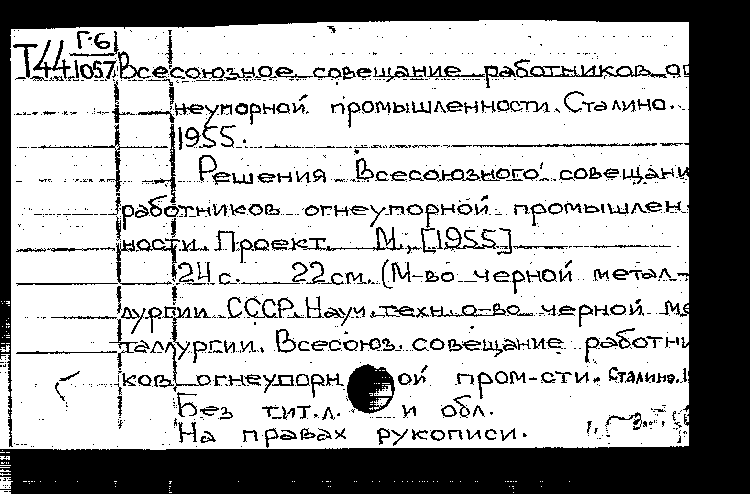 Г-6
Т44 1057 Всесоюзное совещание работников ог
неупорной промышленности. Сталино.
1955.
Решения Всесоюзного совещани
работников огнеупорной промышлен
ности. Проект. М., [1955]
24 с. 22 см. (М-во черной метал-
лургии СССР. Науч. техн. о-во черной ме
таллургии. Всесоюз. совещание работни
ков огнеупорн ой пром-сти. Сталино. 1
Без тит. л. и обл.
На правах рукописи.